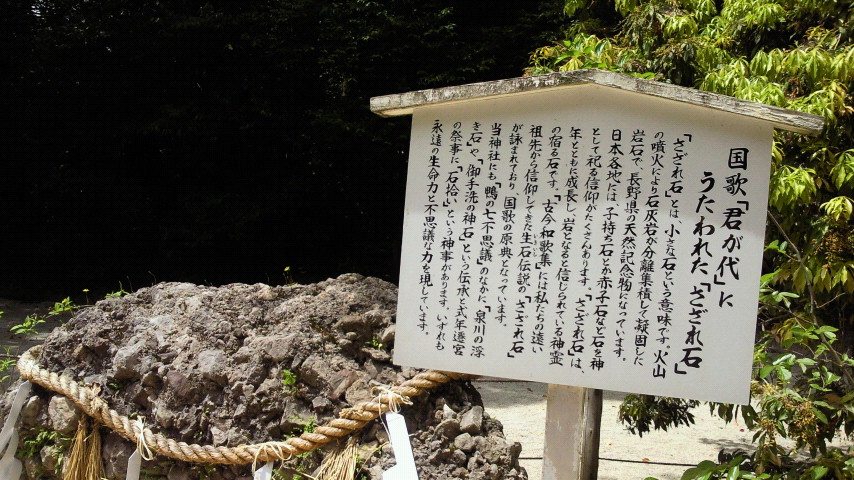 国歌「君が代」に
うたわれた「さざれ石」
「さざれ石」とは、小さな石という意味です。火山
の噴火により石灰岩が分離集積して凝固した
岩石で、長野県の天然記念物になっています。
日本各地には、子持ち石とか赤子石など石を神
として祀る信仰がたくさんあります。「さざれ石」は、
年とともに成長し、岩となると信じられている神霊
の宿る石です。「古今和歌集」には私たちの遠い
祖先から信仰してきた生石伝説の「さざれ石」
が詠まれており、国歌の原典となっています。
当神社にも「鴨の七不思議」のなかに、「泉川の浮
き石」や、「御手洗の神石」という伝承と式年遷宮
の祭事に「石拾い」という神事があります。いずれも
永遠の生命力と不思議な力を現しています。